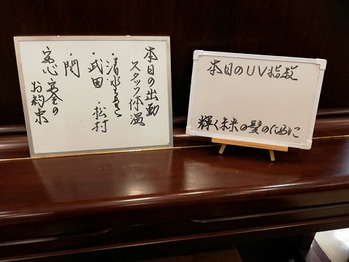 本日の出勤
スタッフ体温
・清水
・武田 ・松村
・関
安心・安全の
お約束
本日のUV指数
輝く未来の髪のために